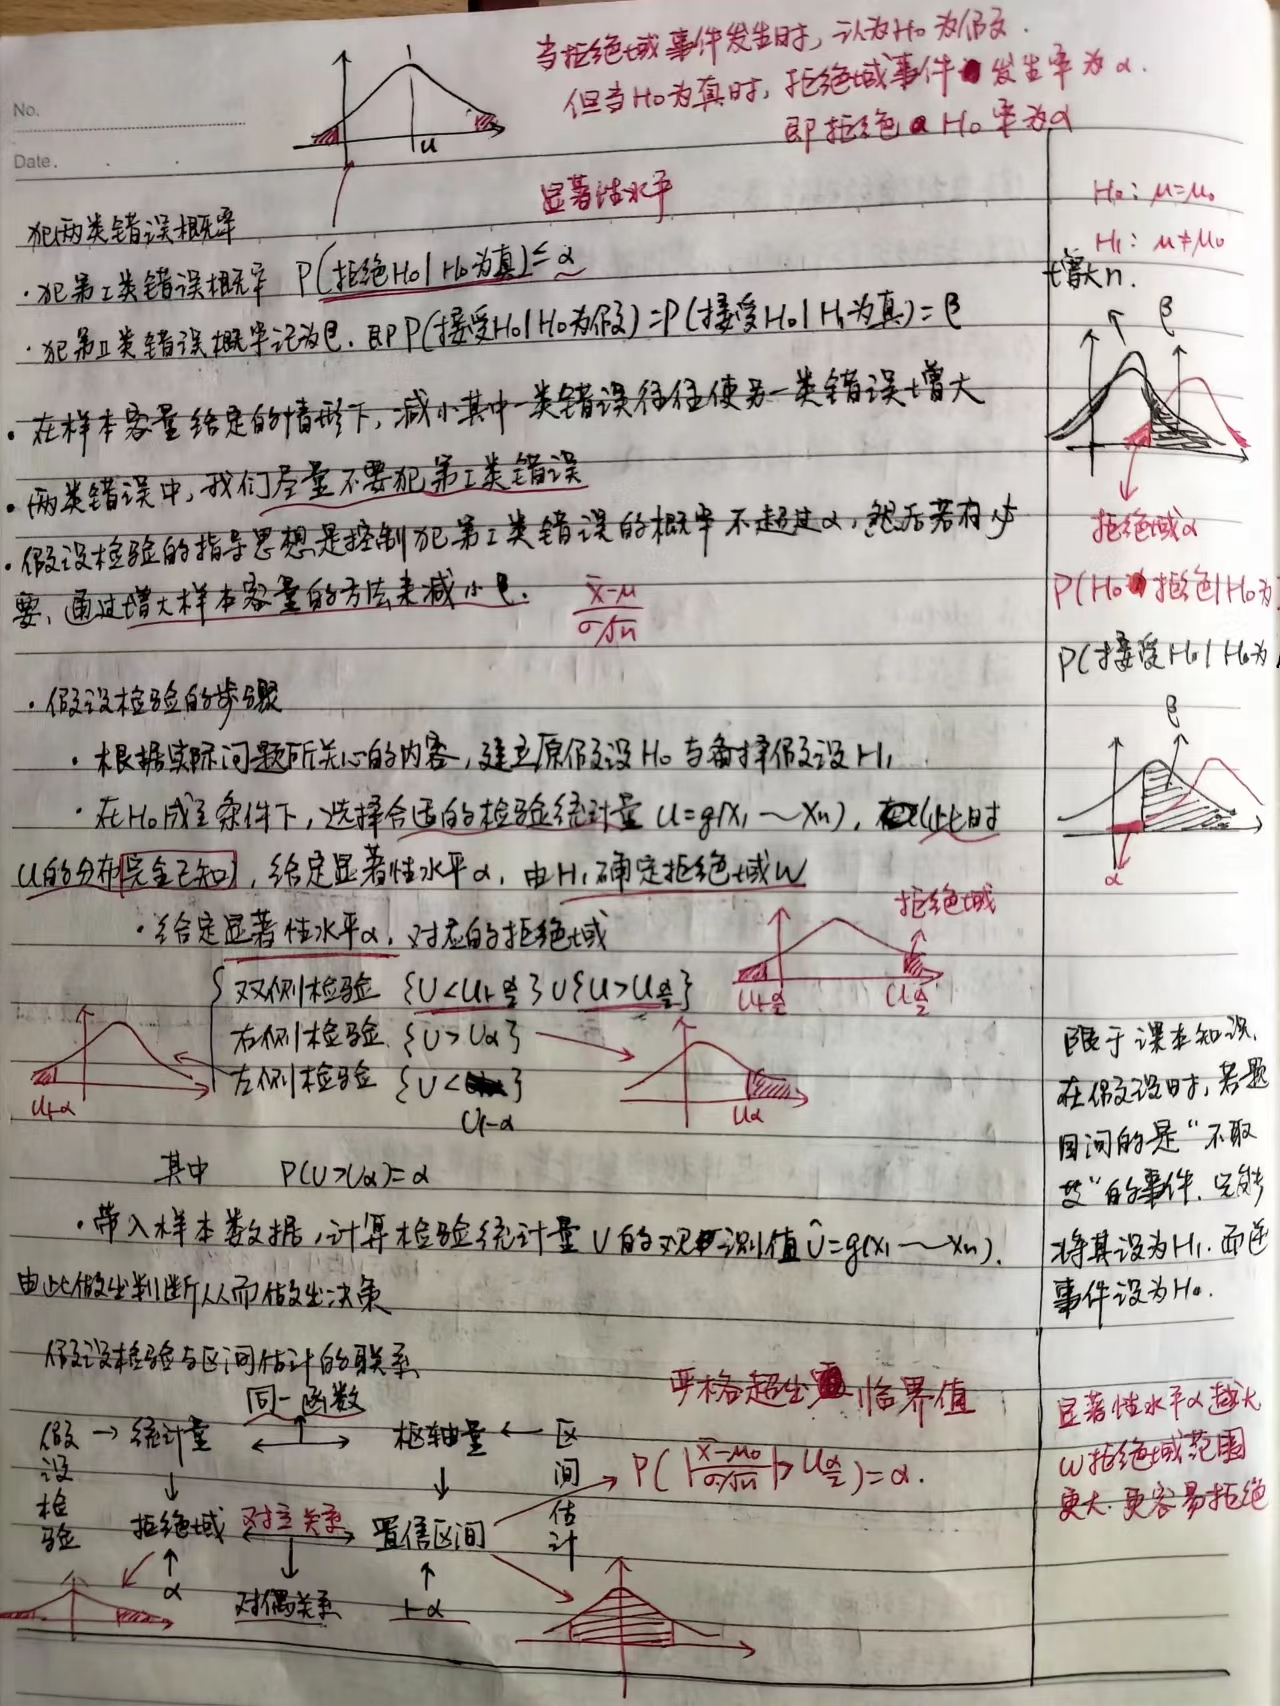 No.
Date.
当拒绝域事件发生时，认为H₀为假.
但当H₀为真时，拒绝域事件发生率为α.
即拒绝H₀率为α
u
显著性水平
犯两类错误概率
·犯第I类错误概率 P(拒绝H₀|H₀为真)≤α
·犯第II类错误概率记为β. 即P(接受H₀|H₀为假)=P(接受H₀|H₁为真)=β
·在样本容量给定的情形下，减小其中一类错误往往使另一类错误增大
·两类错误中，我们尽量不要犯第I类错误
·假设检验的指导思想是控制犯第I类错误的概率不超过α，然后若有必
要，通过增大样本容量的方法来减小β.
(x̄-μ)/(σ/√n)
·假设检验的步骤
·根据实际问题所关心的内容，建立原假设H₀与备择假设H₁
·在H₀成立条件下，选择合适的检验统计量 U=g(X₁～Xₙ)，此时
U的分布完全已知，给定显著性水平α，由H₁确定拒绝域W
·给定显著性水平α，对应的拒绝域
双侧检验 {U<U₁₋α/₂}∪{U>Uα/₂}
右侧检验 {U>Uα}
左侧检验 {U<U₁₋α}
拒绝域
U₁₋α/₂ Uα/₂
U₁₋α
Uα
其中 P(U>Uα)=α
·带入样本数据，计算检验统计量U的观测值Û=g(x₁～xₙ).
由此做出判断从而做出决策
假设检验与区间估计的联系
假设检验 → 统计量 ↔ 枢轴量 ← 区间估计
同一函数
拒绝域 对立关系 置信区间
α 对偶关系 1-α
严格超出临界值
P(|(x̄-μ₀)/(σ/√n)|>Uα/₂)=α.
H₀：μ=μ₀
H₁：μ≠μ₀
增大n.
β
拒绝域α
P(H₀拒绝|H₀为
P(接受H₀|H₀为
β
α
限于课本知识，
在假设时，若题
目问的是“不取
等”的事件，只能
将其设为H₁. 而逆
事件设为H₀.
显著性水平α越大
W拒绝域范围
更大. 更容易拒绝